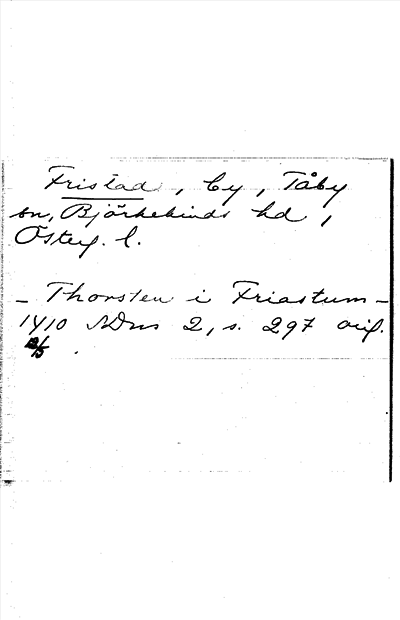 Fristad, by, Tåby
sn, Björkekinds hd,
Österg. l.
- Thorsten i Friastum -
1410 SDns 2, s. 297 orig.
12/5